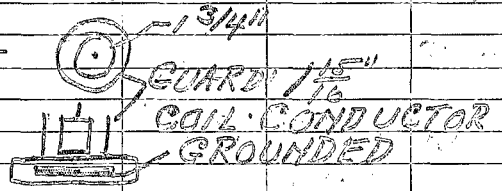 1 3/4"
GUARD: 1 15/16"
COIL·CONDUCTOR
GROUNDED